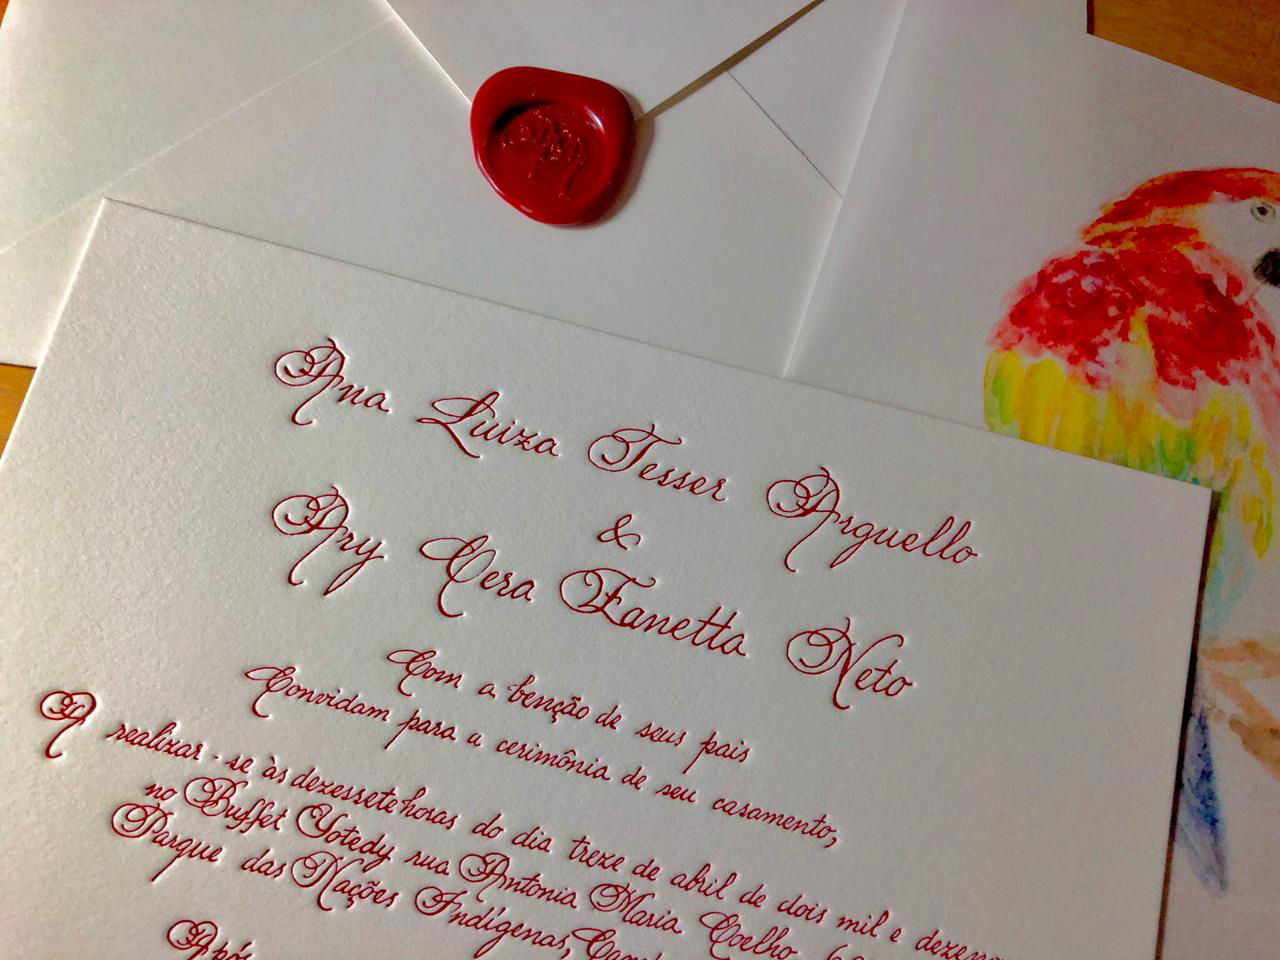 Ana Luiza Tesser Arguello
&
Ary Vera Zanetta Neto
Com a benção de seus pais
Convidam para a cerimônia de seu casamento,
A realizar-se às dezessete horas do dia treze de abril de dois mil e
no Buffet Yotedy rua Antonia Maria Coelho
Parque das Nações Indígenas,
Após